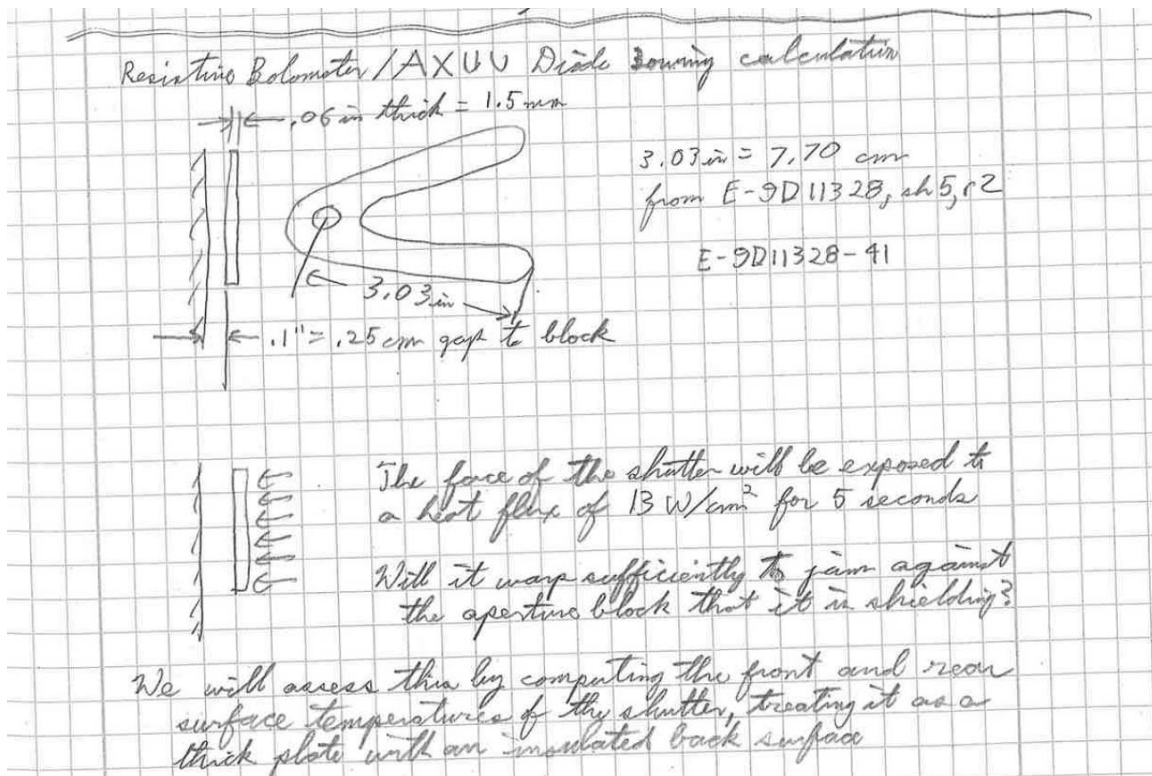 Resistive Bolometer / AXUV Diode Bowing calculation
.06 in thick = 1.5 mm
3.03 in = 7.70 cm
from E-9D11328, sh 5, r2
E-9D11328-41
3.03 in
.1" = .25 cm gap to block
The face of the shutter will be exposed to
a heat flux of 13 W/cm² for 5 seconds
Will it warp sufficiently to jam against
the aperture block that it is shielding?
We will assess this by computing the front and rear
surface temperatures of the shutter, treating it as a
thick plate with an insulated back surface